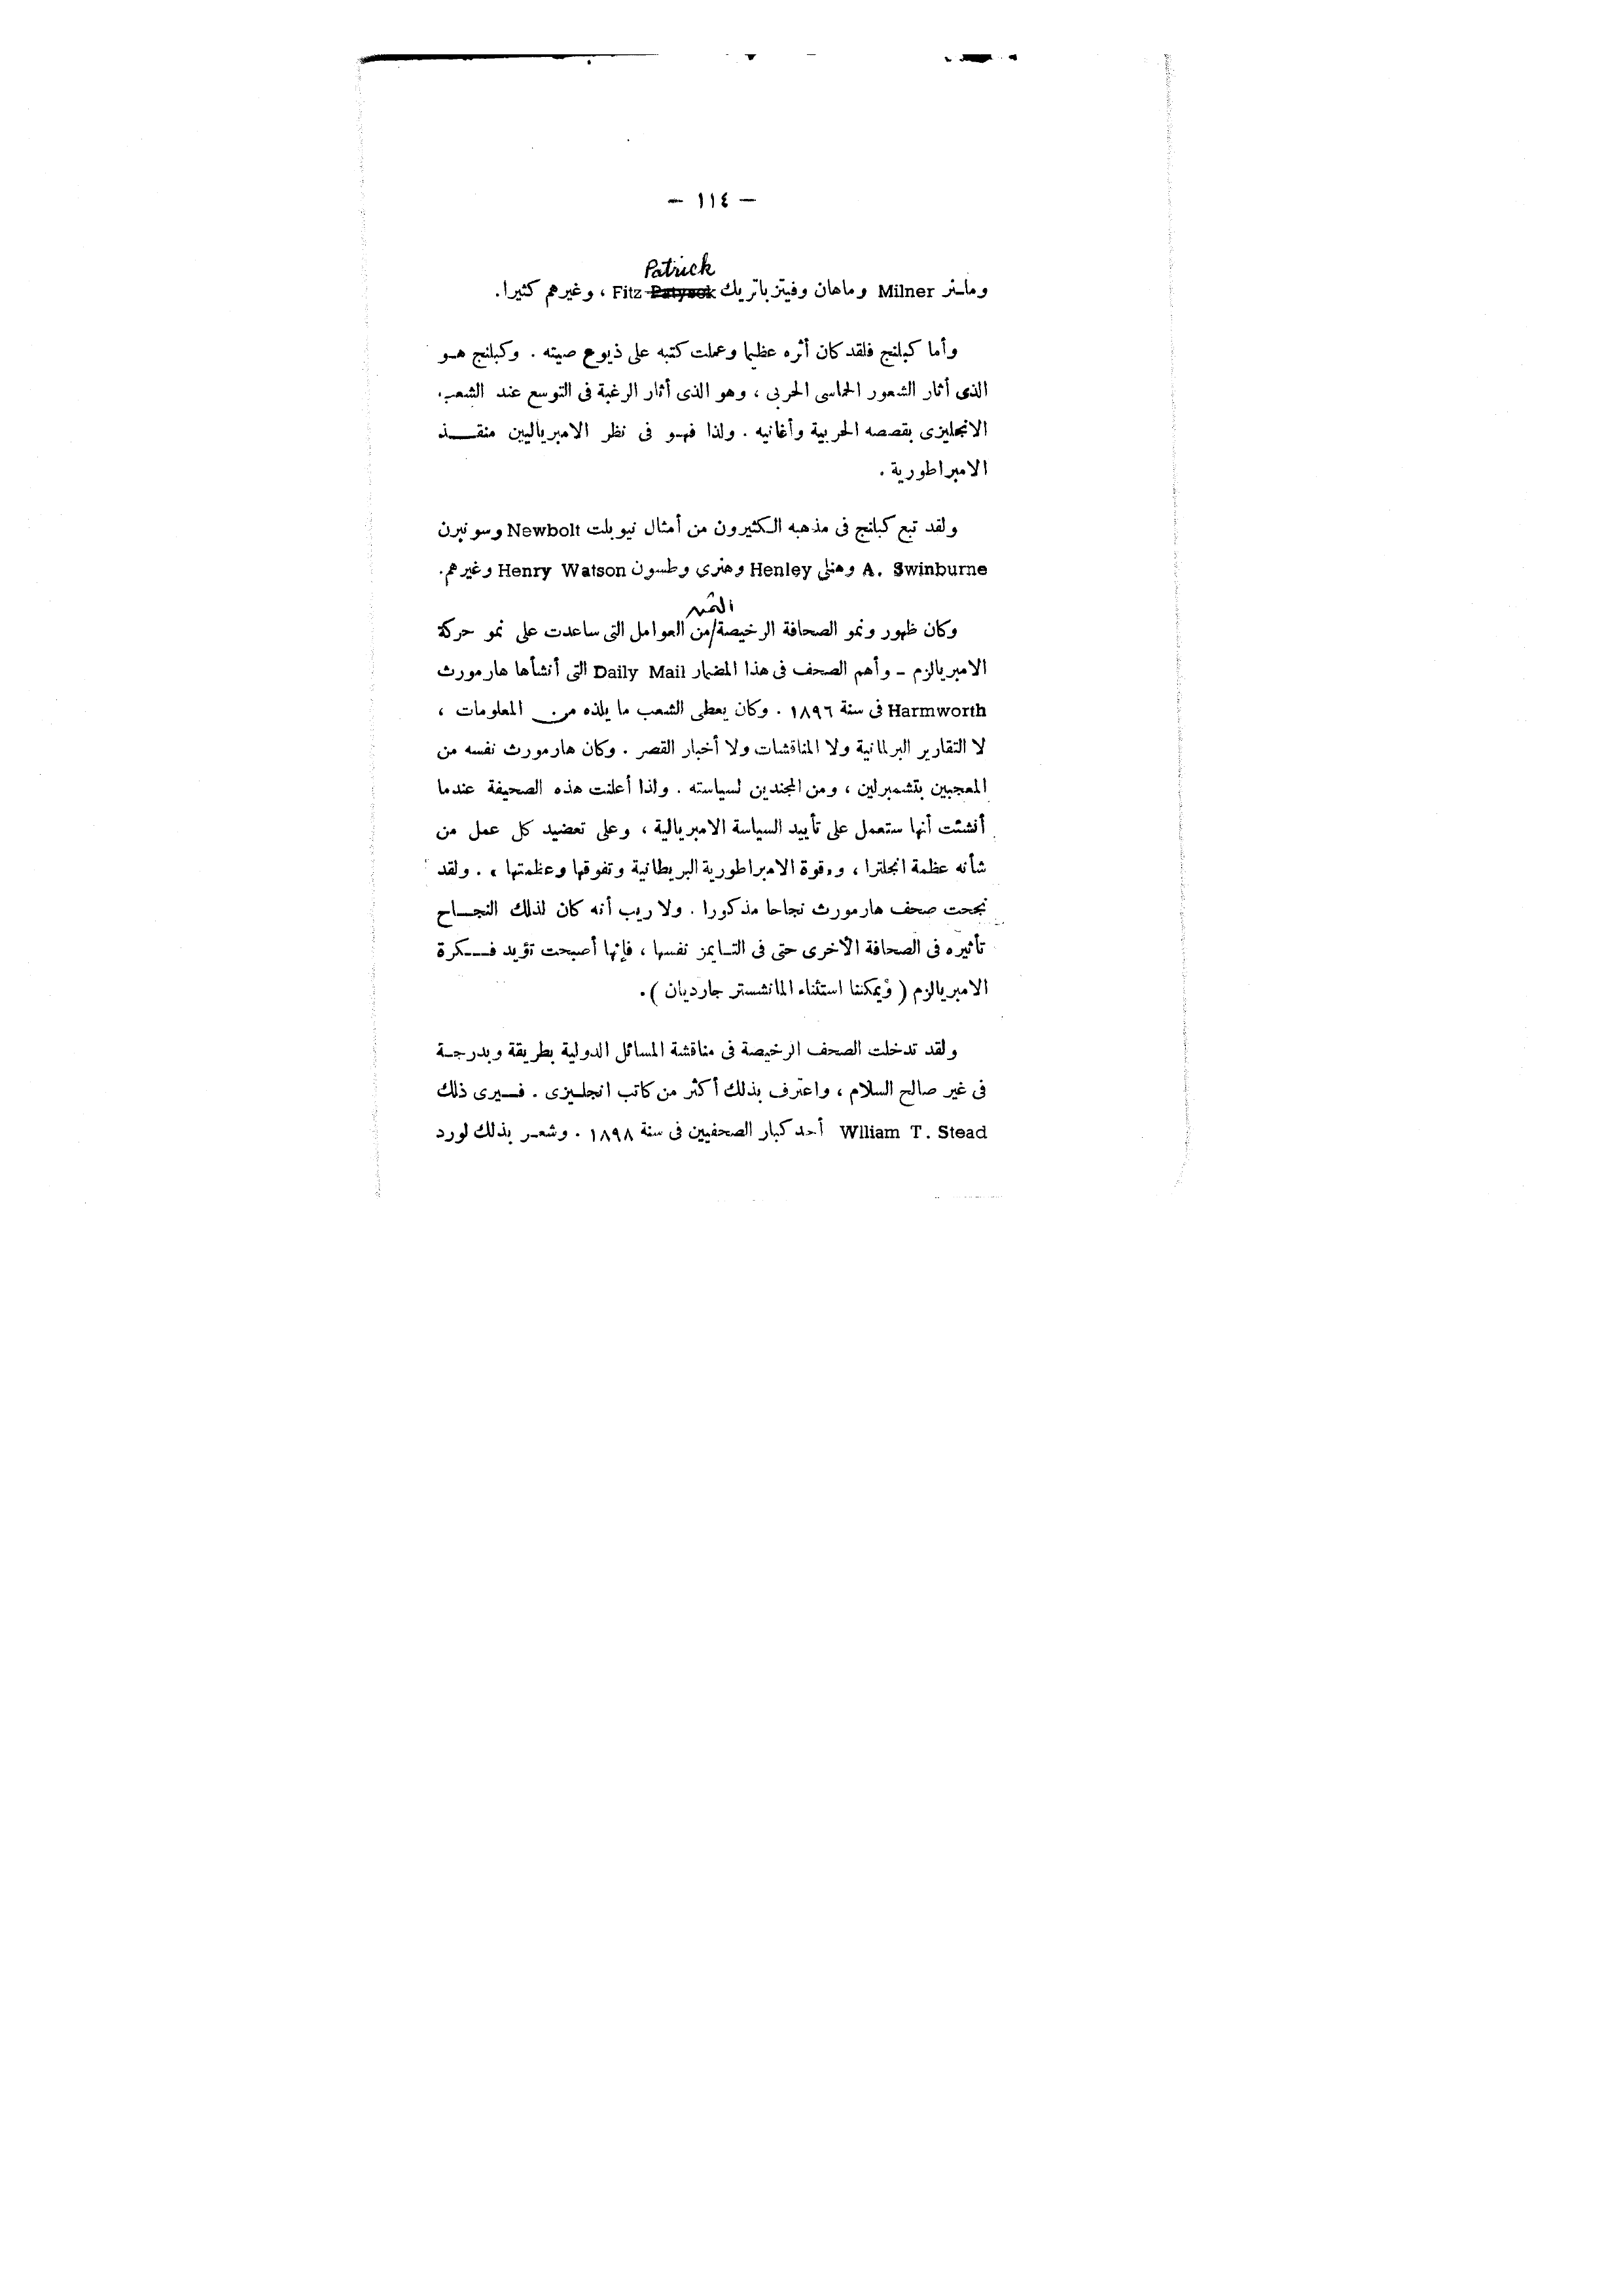 — ١١٤ —
Patrick
وملنر Milner وماهان وفيتز باتريك Fitz ، وغيرهم كثيرا.
وأما كبلنج فلقد كان أثره عظيما وعملت كتبه على ذيوع صيته . وكبلنج هو
الذى أثار الشعور الحماسى الحربى ، وهو الذى أثار الرغبة فى التوسع عند الشعب
الانجليزى بقصصه الحربية وأغانيه . ولذا فهو فى نظر الامبرياليين منقذ
الامبراطورية .
ولقد تبع كبلنج فى مذهبه الكثيرون من أمثال نيوبلت Newbolt وسونبرن
A. Swinburne وهنلى Henley وهنري وطسون Henry Watson وغيرهم.
الثمن
وكان ظهور ونمو الصحافة الرخيصة/من العوامل التى ساعدت على نمو حركة
الامبريالزم - وأهم الصحف فى هذا المضمار Daily Mail التى أنشأها هارمورث
Harmworth فى سنة ١٨٩٦ . وكان يعطى الشعب ما يلذه من المعلومات ،
لا التقارير البرلمانية ولا المناقشات ولا أخبار القصر . وكان هارمورث نفسه من
المعجبين بتشمبرلين ، ومن المجندين لسياسته . ولذا أعلنت هذه الصحيفة عندما
أنشئت أنها ستعمل على تأييد السياسة الامبريالية ، وعلى تعضيد كل عمل من
شأنه عظمة انجلترا ، و«قوة الامبراطورية البريطانية وتفوقها وعظمتها» . ولقد
نجحت صحف هارمورث نجاحا مذكورا . ولا ريب أنه كان لذلك النجاح
تأثيره فى الصحافة الأخرى حتى فى التايمز نفسها ، فإنها أصبحت تؤيد فكرة
الامبريالزم ( ويمكننا استثناء المانشستر جارديان ).
ولقد تدخلت الصحف الرخيصة فى مناقشة المسائل الدولية بطريقة وبدرجة
فى غير صالح السلام ، واعترف بذلك أكثر من كاتب انجليزى . فيرى ذلك
Wlliam T. Stead أحد كبار الصحفيين فى سنة ١٨٩٨ . وشعر بذلك لورد